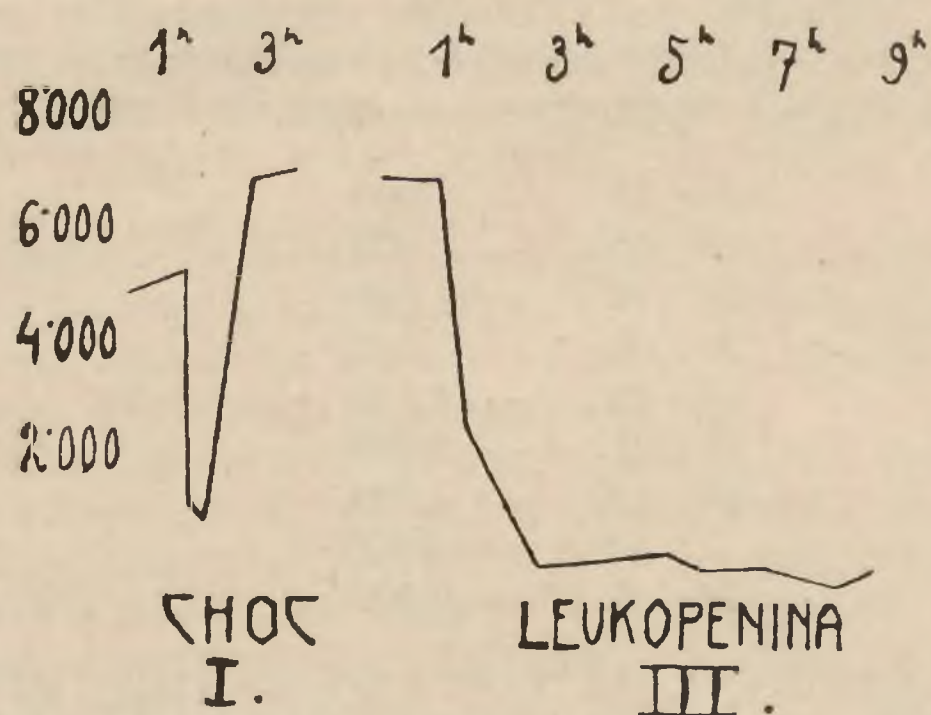 1h 3h 1h 3h 5h 7h 9h
8'000
6'000
4'000
2'000
CHOC LEUKOPENINA
I. III.